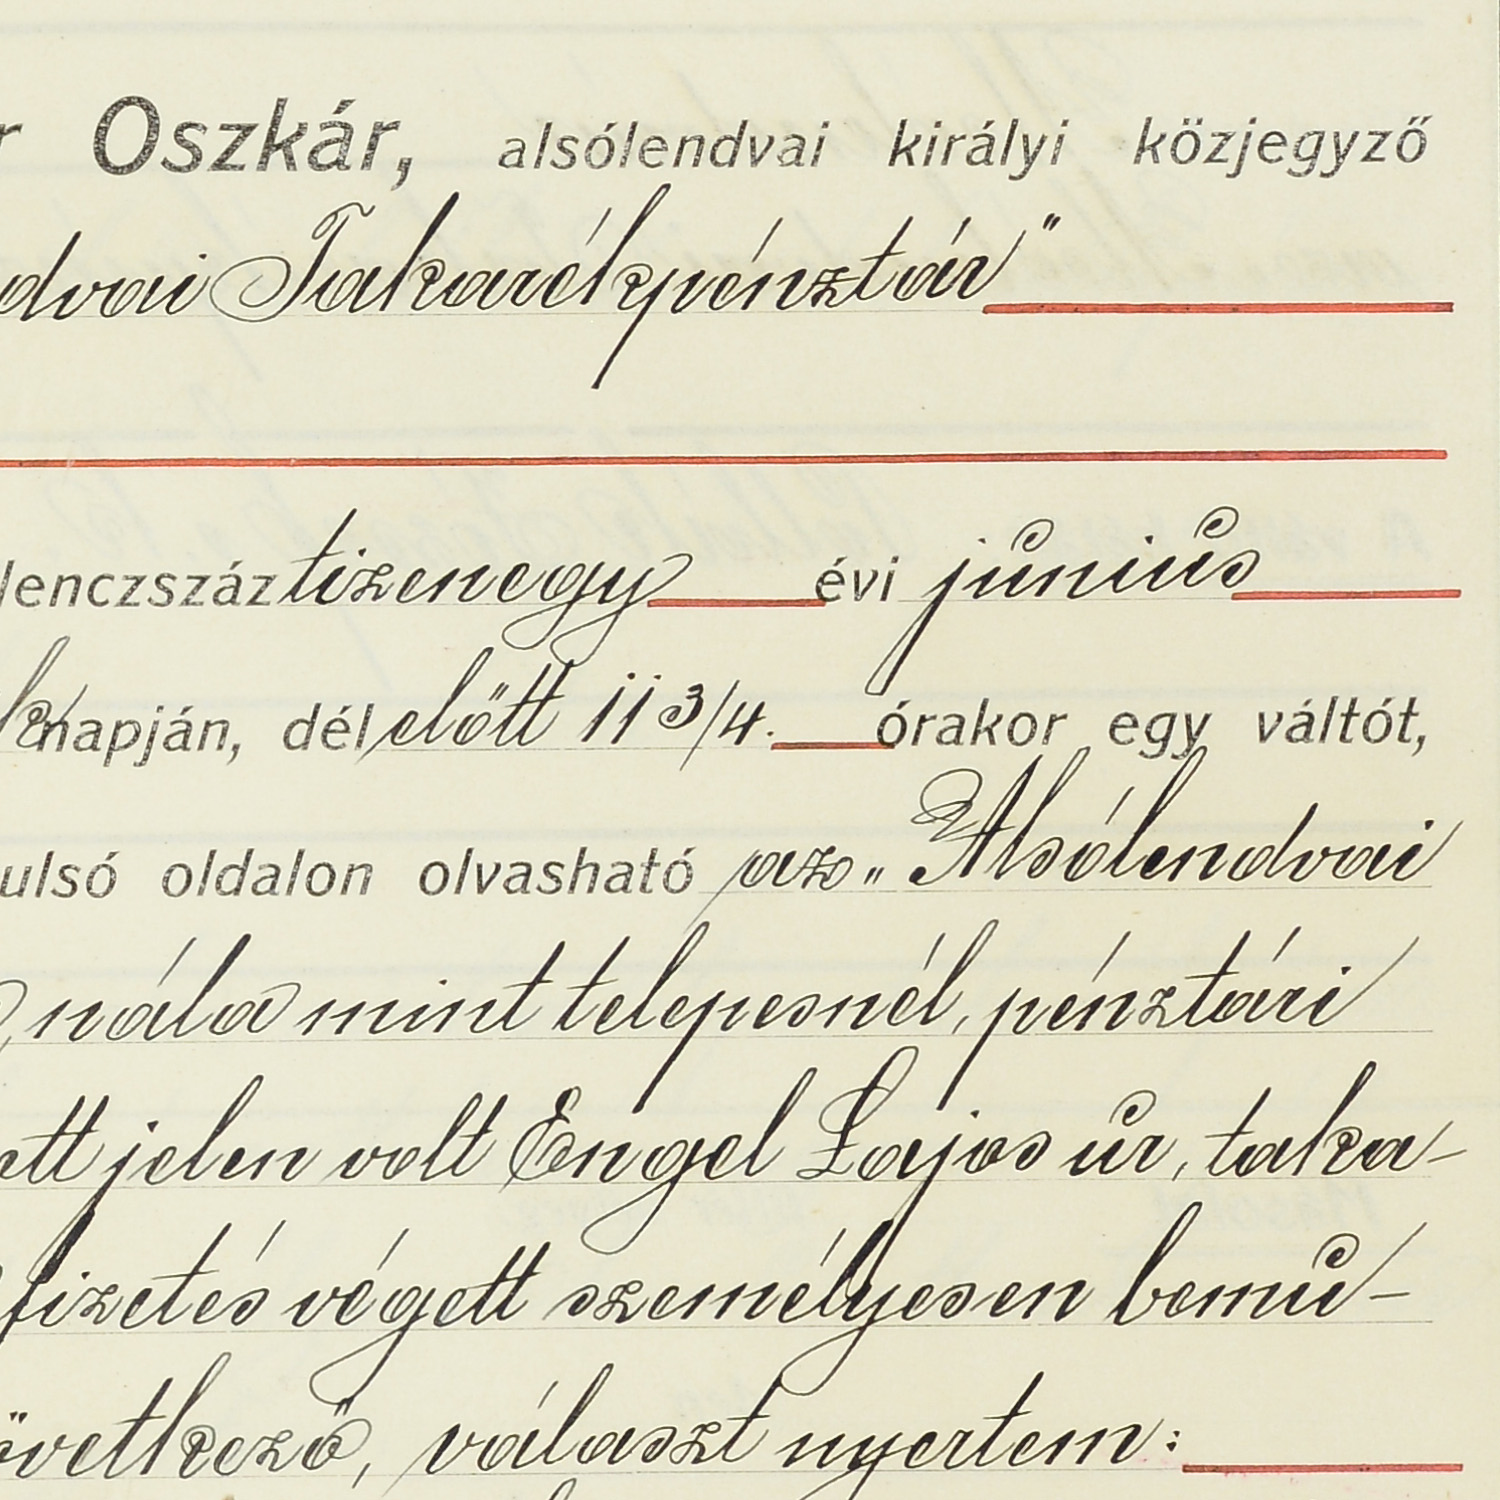 r Oszkár, alsólendvai királyi közjegyző
dvai Takarékpénztár"
lenczszáz tizenegy évi június
napján, délelőtt 11 3/4. órakor egy váltót,
ulsó oldalon olvasható az „Alsólendvai
, nála mint telepesnél, pénztári
ett jelen volt Engel Lajos úr, taka-
fizetés végett személyesen bemu-
övetkező, választ nyertem: